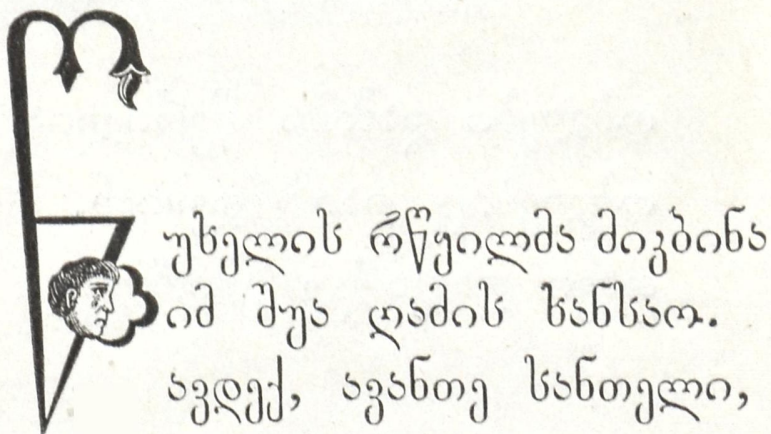 წუხელის რწყილმა მიკბინა
იმ შუა ღამის ხანსაო.
ავდექ, ავანთე სანთელი,